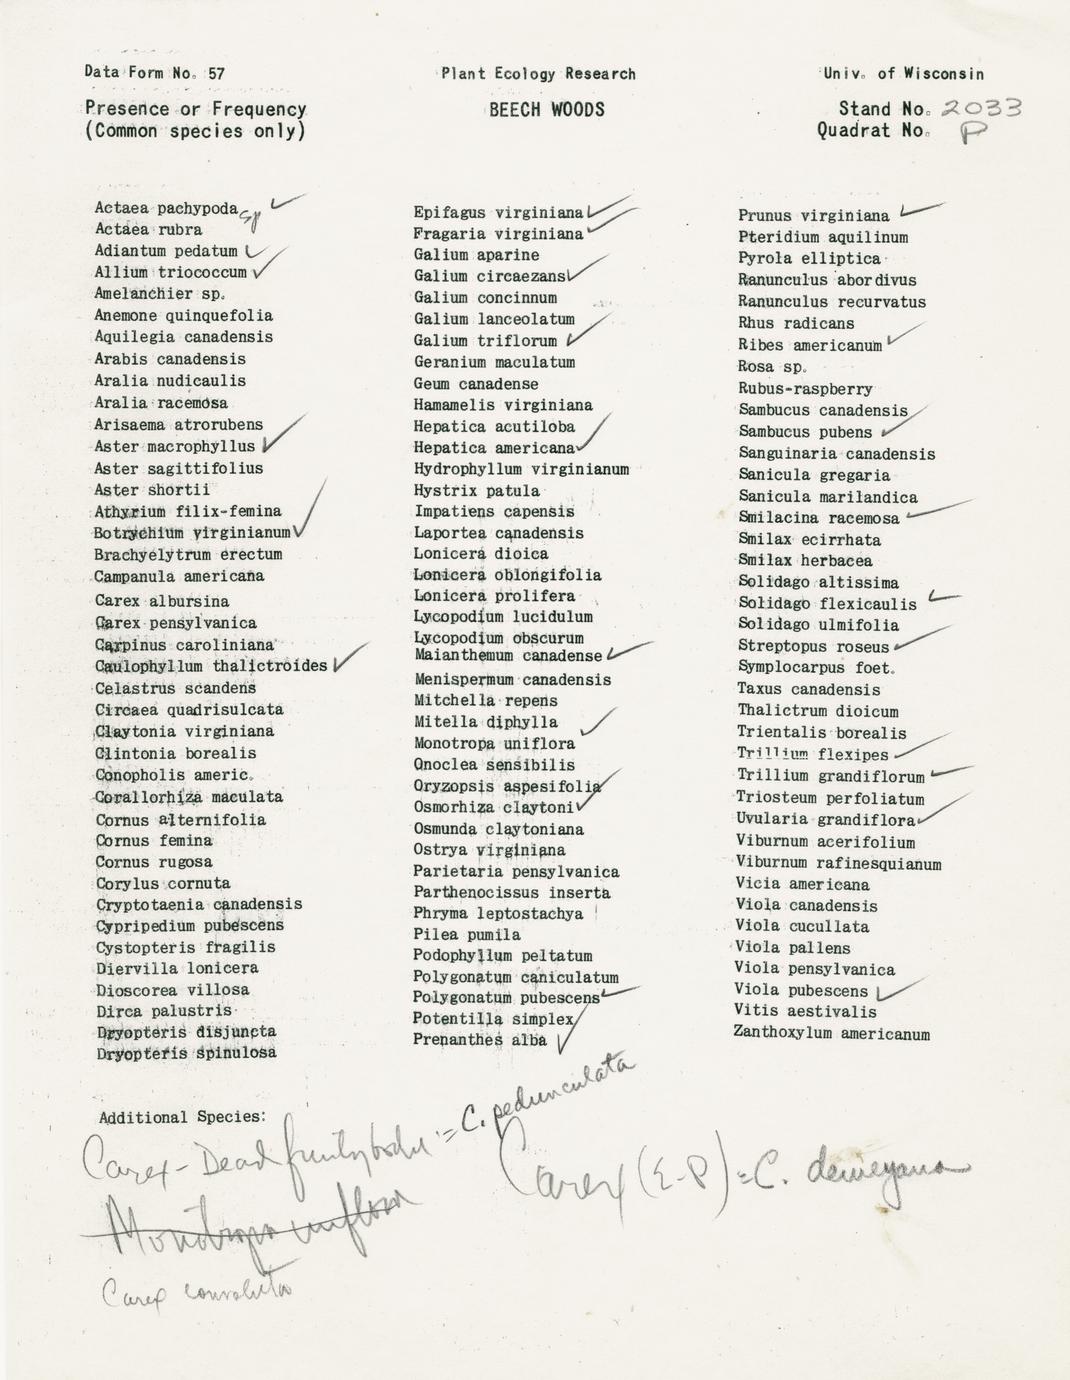 Data Form No. 57
Plant Ecology Research
Univ. of Wisconsin
Presence or Frequency
(Common species only)
BEECH WOODS
Stand No. 2033
Quadrat No. P
Actaea pachypoda sp ✓
Actaea rubra
Adiantum pedatum ✓
Allium triococcum ✓
Amelanchier sp.
Anemone quinquefolia
Aquilegia canadensis
Arabis canadensis
Aralia nudicaulis
Aralia racemosa
Arisaema atrorubens
Aster macrophyllus ✓
Aster sagittifolius
Aster shortii
Athyrium filix-femina
Botrychium virginianum ✓
Brachyelytrum erectum
Campanula americana
Carex albursina
Carex pensylvanica
Carpinus caroliniana
Caulophyllum thalictroides ✓
Celastrus scandens
Circaea quadrisulcata
Claytonia virginiana
Clintonia borealis
Conopholis americ.
Corallorhiza maculata
Cornus alternifolia
Cornus femina
Cornus rugosa
Corylus cornuta
Cryptotaenia canadensis
Cypripedium pubescens
Cystopteris fragilis
Diervilla lonicera
Dioscorea villosa
Dirca palustris
Dryopteris disjuncta
Dryopteris spinulosa
Epifagus virginiana ✓
Fragaria virginiana ✓
Galium aparine
Galium circaezans ✓
Galium concinnum
Galium lanceolatum
Galium triflorum ✓
Geranium maculatum
Geum canadense
Hamamelis virginiana
Hepatica acutiloba
Hepatica americana ✓
Hydrophyllum virginianum
Hystrix patula
Impatiens capensis
Laportea canadensis
Lonicera dioica
Lonicera oblongifolia
Lonicera prolifera
Lycopodium lucidulum
Lycopodium obscurum
Maianthemum canadense ✓
Menispermum canadensis
Mitchella repens
Mitella diphylla ✓
Monotropa uniflora
Onoclea sensibilis
Oryzopsis aspesifolia
Osmorhiza claytoni ✓
Osmunda claytoniana
Ostrya virginiana
Parietaria pensylvanica
Parthenocissus inserta
Phryma leptostachya
Pilea pumila
Podophyllum peltatum
Polygonatum caniculatum
Polygonatum pubescens ✓
Potentilla simplex
Prenanthes alba ✓
Prunus virginiana ✓
Pteridium aquilinum
Pyrola elliptica
Ranunculus abordivus
Ranunculus recurvatus
Rhus radicans
Ribes americanum ✓
Rosa sp.
Rubus-raspberry
Sambucus canadensis
Sambucus pubens ✓
Sanguinaria canadensis
Sanicula gregaria
Sanicula marilandica
Smilacina racemosa ✓
Smilax ecirrhata
Smilax herbacea
Solidago altissima
Solidago flexicaulis ✓
Solidago ulmifolia
Streptopus roseus ✓
Symplocarpus foet.
Taxus canadensis
Thalictrum dioicum
Trientalis borealis
Trillium flexipes ✓
Trillium grandiflorum ✓
Triosteum perfoliatum
Uvularia grandiflora ✓
Viburnum acerifolium
Viburnum rafinesquianum
Vicia americana
Viola canadensis
Viola cucullata
Viola pallens
Viola pensylvanica
Viola pubescens ✓
Vitis aestivalis
Zanthoxylum americanum
Additional Species:
Carex - Dead = C. pedunculata
Carex (E-P) = C. deweyana
Monotropa uniflora
Carex convoluta